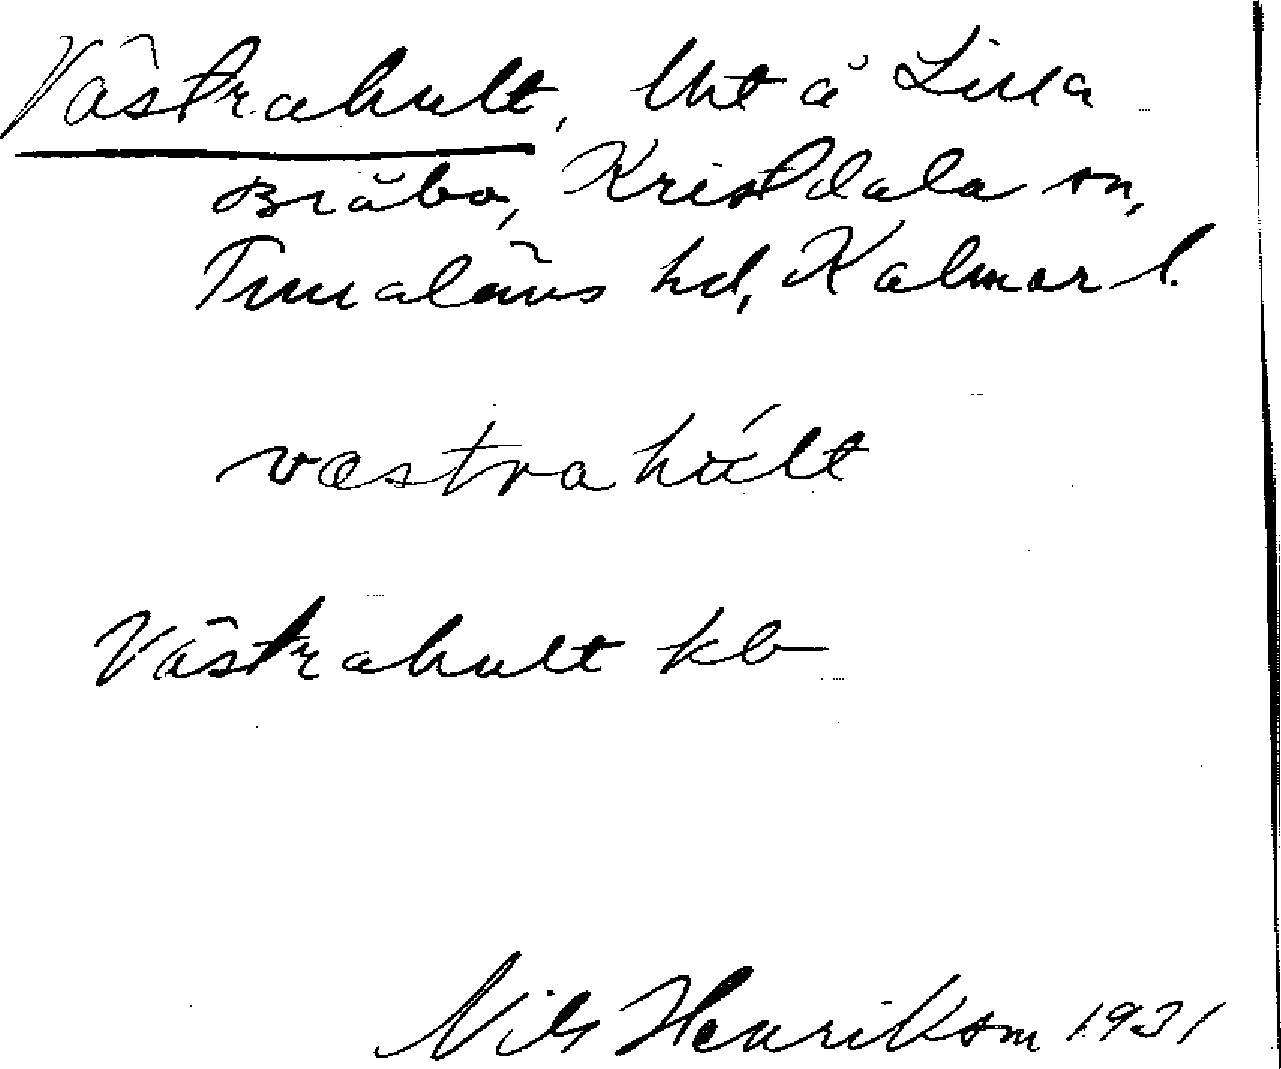 Västrahult, lht å Lilla
Bråbo, Kristdala sn,
Tunaläns hd, Kalmar l.
væstrahúlt
Västrahult kb
Nils Henrikson 1931